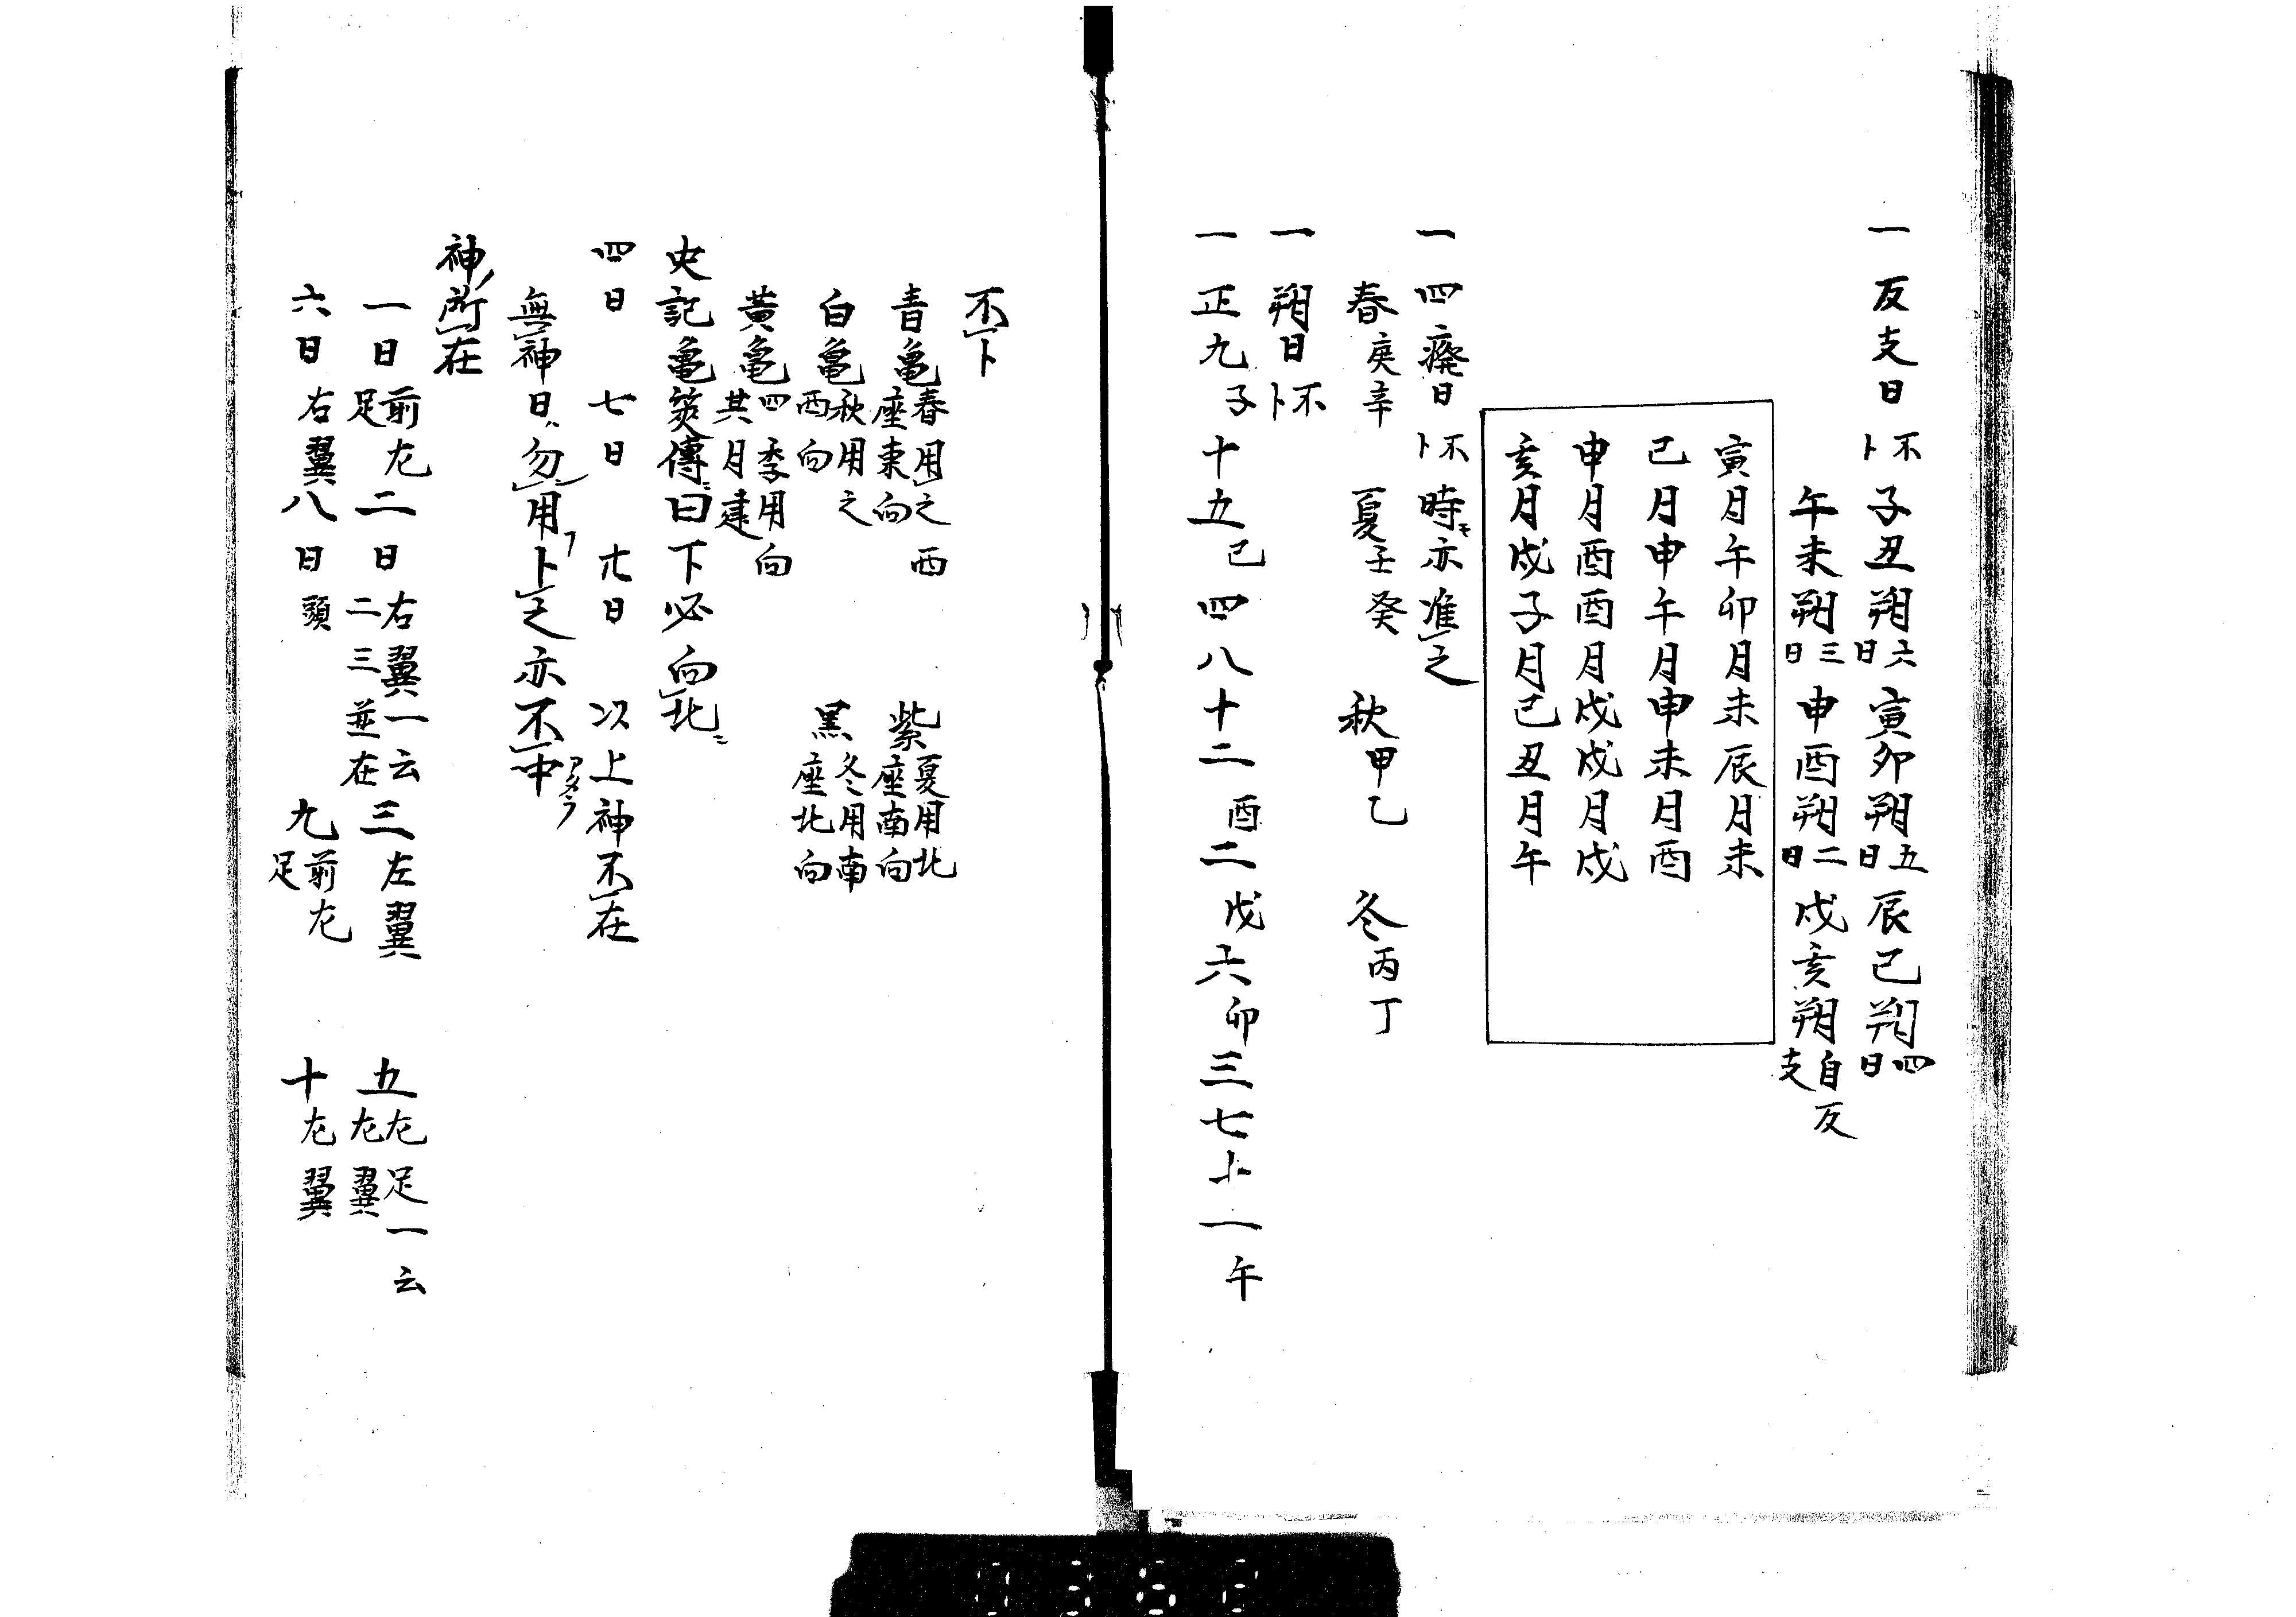 一反支日不卜子丑朔六日寅卯朔五日辰巳朔四日
午未朔三日申酉朔二日戌亥朔自反支
寅月午卯月未辰月未
巳月申午月申未月酉
申月酉酉月戌戌月戌
亥月戌子月巳丑月午
一四癈日不卜時〻亦准之
春庚辛　夏壬癸　秋甲乙　冬丙丁
一朔日不卜
一正九子十五巳四八十二酉二戊六卯三七十一午
不卜
青亀春用之西座東向　紫夏用北座南向
白亀秋用之西向　黒冬用南座北向
黄亀四季用向其月建
史記亀筴傳曰下必向北
四日　七日　　日　以上神不在
無神日勿用卜之亦不中アタラ
神所在
一日前左足二日右翼一云二三並在三左翼　五左足一云左翼
六日右翼八日頭　九前左足　十左翼